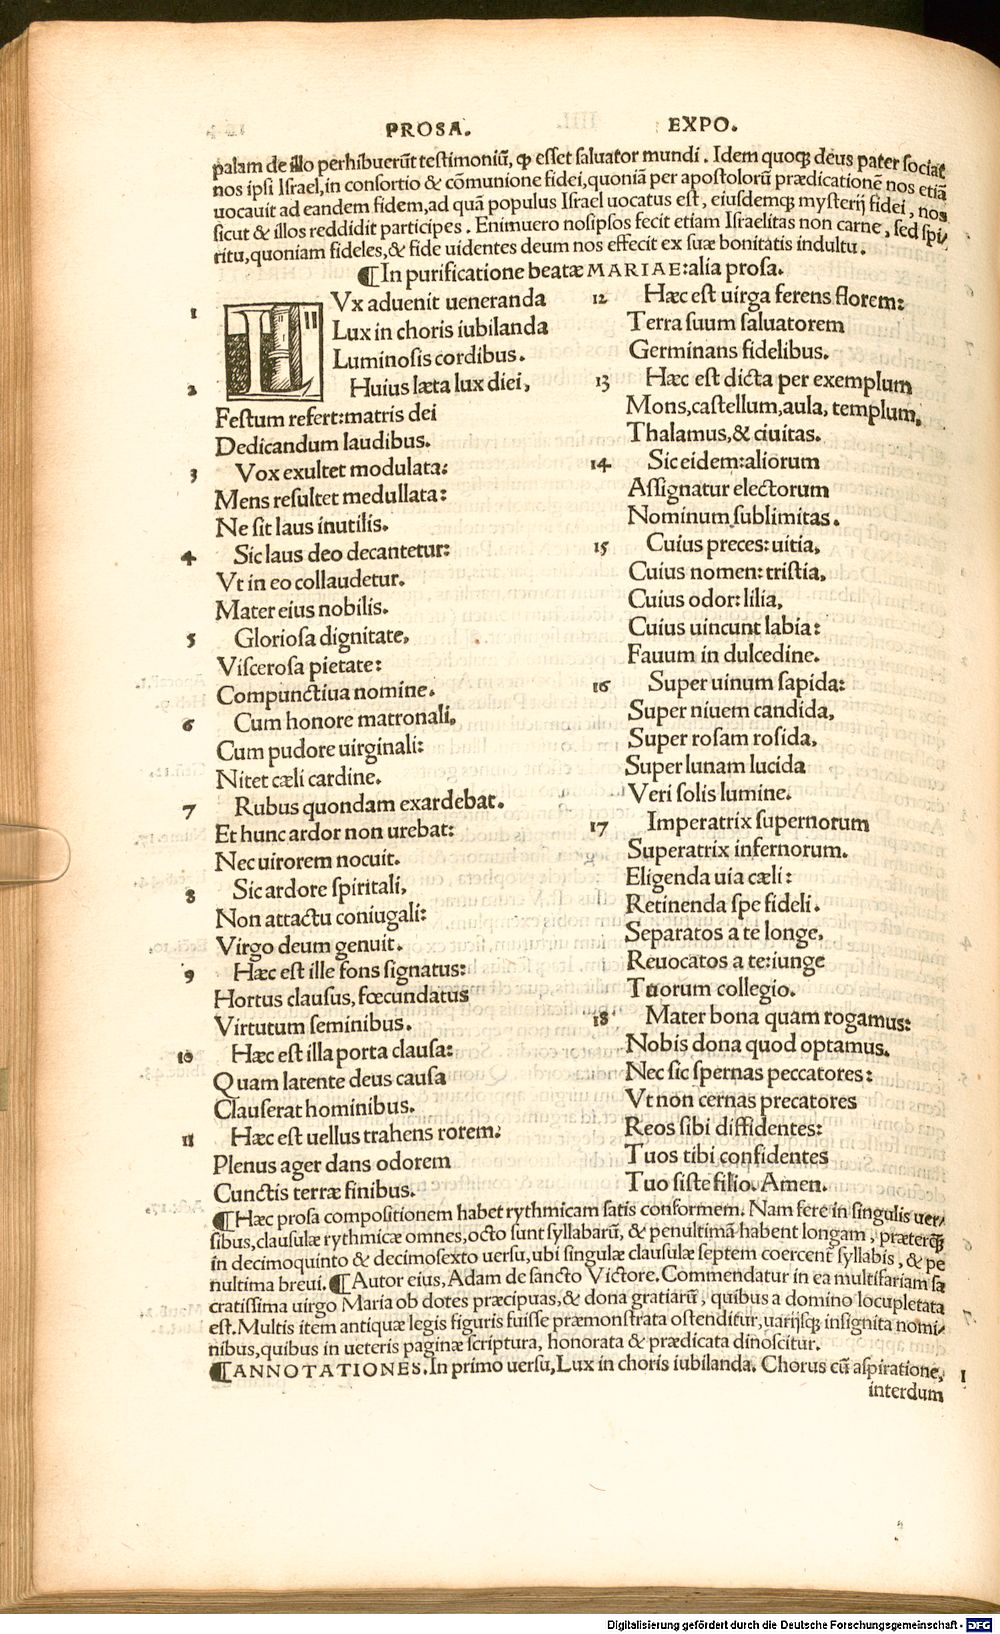 PROSA. EXPO.
palam de illo perhibuerūt testimoniū, ꝙ esset saluator mundi. Idem quoqꝫ deus pater sociat
nos ipsi Israel, in consortio & cōmunione fidei, quoniā per apostolorū prædicationē nos etiā
uocauit ad eandem fidem, ad quā populus Israel uocatus est, eiusdemqꝫ mysterij fidei, nos
sicut & illos reddidit participes. Enimuero nosipsos fecit etiam Israelitas non carne, sed spi/
ritu, quoniam fideles, & fide uidentes deum nos effecit ex suæ bonitatis indultu.
¶In purificatione beatæ MARIAE: alia prosa.
1 LVx aduenit ueneranda
Lux in choris iubilanda
Luminosis cordibus.
2 Huius læta lux diei,
Festum refert: matris dei
Dedicandum laudibus.
3 Vox exultet modulata:
Mens resultet medullata:
Ne sit laus inutilis.
4 Sic laus deo decantetur:
Vt in eo collaudetur.
Mater eius nobilis.
5 Gloriosa dignitate,
Viscerosa pietate:
Compunctiua nomine.
6 Cum honore matronali,
Cum pudore uirginali:
Nitet cæli cardine.
7 Rubus quondam exardebat.
Et hunc ardor non urebat:
Nec uirorem nocuit.
8 Sic ardore spiritali,
Non attactu coniugali:
Virgo deum genuit.
9 Hæc est ille fons signatus:
Hortus clausus, fœcundatus
Virtutum seminibus.
10 Hæc est illa porta clausa:
Quam latente deus causa
Clauserat hominibus.
11 Hæc est uellus trahens rorem:
Plenus ager dans odorem
Cunctis terræ finibus.
12 Hæc est uirga ferens florem:
Terra suum saluatorem
Germinans fidelibus.
13 Hæc est dicta per exemplum
Mons, castellum, aula, templum,
Thalamus, & ciuitas.
14 Sic eidem: aliorum
Assignatur electorum
Nominum sublimitas.
15 Cuius preces: uitia,
Cuius nomen: tristia,
Cuius odor: lilia,
Cuius uincunt labia:
Fauum in dulcedine.
16 Super uinum sapida:
Super niuem candida,
Super rosam rosida,
Super lunam lucida
Veri solis lumine.
17 Imperatrix supernorum
Superatrix infernorum.
Eligenda uia cæli:
Retinenda spe fideli.
Separatos a te longe,
Reuocatos a te: iunge
Tuorum collegio.
18 Mater bona quam rogamus:
Nobis dona quod optamus.
Nec sic spernas peccatores:
Vt non cernas precatores
Reos sibi diffidentes:
Tuos tibi confidentes
Tuo siste filio. Amen.
¶Hæc prosa compositionem habet rythmicam satis conformem. Nam fere in singulis uer/
sibus, clausulæ rythmicæ omnes, octo sunt syllabarū, & penultimā habent longam, præterqꝫ
in decimoquinto & decimosexto uersu, ubi singulæ clausulæ septem coercent syllabis, & pe
nultima breui. ¶Autor eius, Adam de sancto Victore. Commendatur in ea multifariam sa
cratissima uirgo Maria ob dotes præcipuas, & dona gratiarū, quibus a domino locupletata
est. Multis item antiquæ legis figuris fuisse præmonstrata ostenditur, uarijsqꝫ insignita nomi/
nibus, quibus in ueteris paginæ scriptura, honorata & prædicata dinoscitur.
¶ANNOTATIONES. In primo uersu, Lux in choris iubilanda. Chorus cū aspiratione, 1
interdum
Digitalisierung gefördert durch die Deutsche Forschungsgemeinschaft - DFG